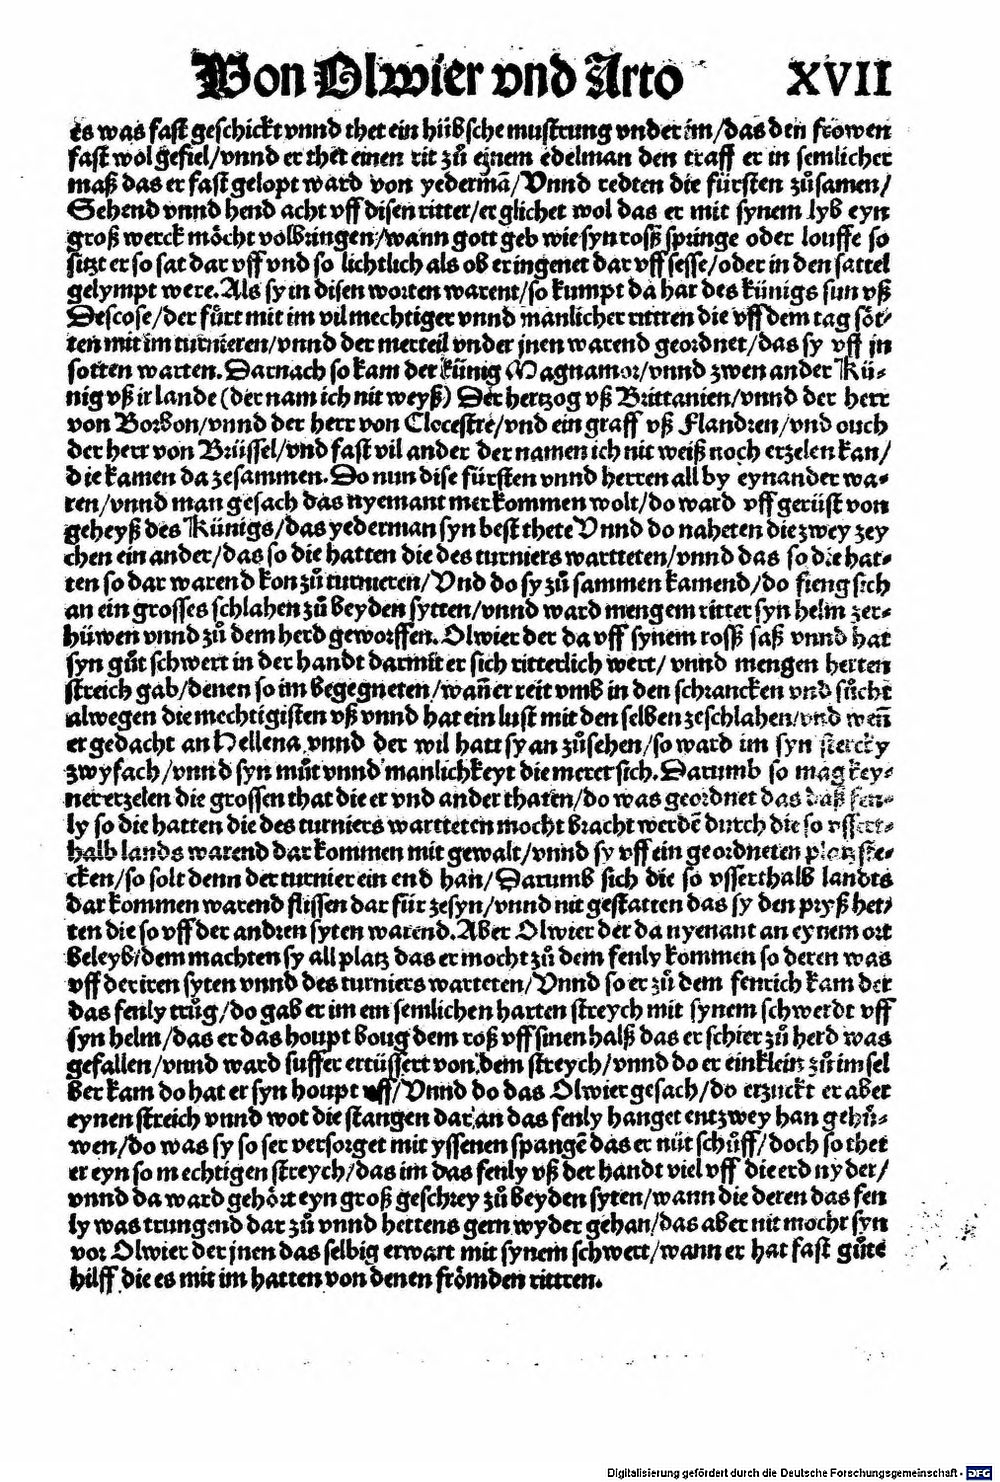 Von Olwier vnd Arto XVII
es was fast geschickt vnnd thet ein hübsche mustrung vnder im/das den frowen
fast wol gefiel/vnnd er thet einen rit zů eynem edelman den traff er in semlicher
maß das er fast gelopt ward von yedermā/Vnnd redten die fürsten zůsamen/
Sehend vnnd hend acht vff disen ritter/er glichet wol das er mit synem lyb eyn
groß werck möcht volbringen/wann gott geb wie syn rosß springe oder louffe so
sitzt er so sat dar vff vnd so lichtlich als ob er ingenet dar vff sesse/oder in den sattel
gelympt were. Als sy in disen worten warent/so kumpt da har des künigs sun vß
Descose/der fůrt mit im vil mechtiger vnnd manlicher rittren die vff dem tag söt-
ten mit im turnieren/vnnd der merteil vnder jnen warend geordnet/das sy vff jn
sotten warten. Darnach so kam der künig Magnamor/vnnd zwen ander Kü-
nig vß ir lande (der nam ich nit weyß) Der hertzog vß Brittanien/vnnd der herr
von Borbon/vnnd der herr von Clocestre/vnd ein graff vß Flandren/vnd ouch
der herr von Brüssel/vnd fast vil ander der namen ich nit weiß noch erzelen kan/
die kamen da zesammen. Do nun dise fürsten vnnd herren all by eynander wa-
ren/vnnd man gesach das nyemant mer kommen wolt/do ward vff gerüst von
geheyß des Künigs/das yederman syn best thete Vnnd do naheten die zwey zey
chen ein ander/das so die hatten die des turniers wartteten/vnnd das so die hat-
ten so dar warend kon zů turnieren/Vnd do sy zů sammen kamend/do fieng sich
an ein grosses schlahen zů beyden sytten/vnnd ward mengem ritter syn helm zer-
hüwen vnnd zů dem herd geworffen. Olwier der da vff synem rosß saß vnnd hat
syn gůt schwert in der handt darmit er sich ritterlich wert/ vnnd mengen herten
streich gab/denen so im begegneten/wañ er reit vmb in den schrancken vnd sůcht
alwegen die mechtigisten vß vnnd hat ein lust mit den selben zeschlahen/vnd weñ
er gedacht an Hellena vnnd der wil hatt sy an zůsehen/so ward im syn stercky
zwyfach/vnnd syn můt vnnd manlichkeyt die merer sich. Darumb so mag key-
ner erzelen die grossen that die er vnd ander thaten/do was geordnet das daß fen-
ly so die hatten die des turniers wartteten mocht bracht werdē durch die so vssert-
halb lands warend dar kommen mit gewalt/vnnd sy vff ein geordneten platz ste-
cken/so solt denn der turnier ein end han/Darumb sich die so vsserthalb landts
dar kommen warend flissen dar für zesyn/vnnd nit gestatten das sy den pryß het-
ten die so vff der andren syten warend. Aber Olwier der da nyenant an eynem ort
beleyb/dem machten sy all platz das er mocht zů dem fenly kommen so deren was
vff der iren syten vnnd des turniers warteten/Vnnd so er zů dem fenrich kam der
das fenly trůg/do gab er im ein semlichen harten streych mit synem schwerdt vff
syn helm/das er das houpt boug dem roß vff sinen halß das er schier zů herd was
gefallen/vnnd ward suffer ertüssert von dem streych/vnnd do er ein klein zů im sel
ber kam do hat er syn houpt vff/Vnnd do das Olwier gesach/do erzuckt er aber
eynen streich vnnd wot die stangen dar an das fenly hanget entzwey han gehů-
wen/do was sy so ser versorget mit yssenen spangē das er nüt schůff/doch so thet
er eyn so mechtigen streych/das im das fenly vß der handt viel vff die erd nyder/
vnnd da ward gehört eyn groß geschrey zů beyden syten/wann die deren das fen
ly was trungend dar zů vnnd hettens gern wyder gehan/das aber nit mocht syn
vor Olwier der jnen das selbig erwart mit synem schwert/wann er hat fast gůte
hilff die es mit im hatten von denen frömden rittren.
Digitalisierung gefördert durch die Deutsche Forschungsgemeinschaft - DFG